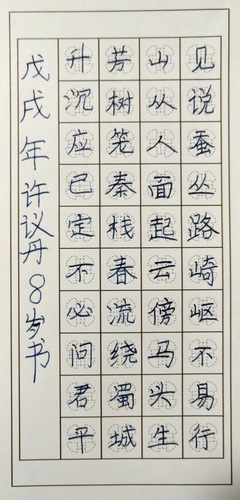 见说蚕丛路崎岖不易行
山从人面起云傍马头生
芳树笼秦栈春流绕蜀城
升沉应已定不必问君平
戊戌年许议丹8岁书